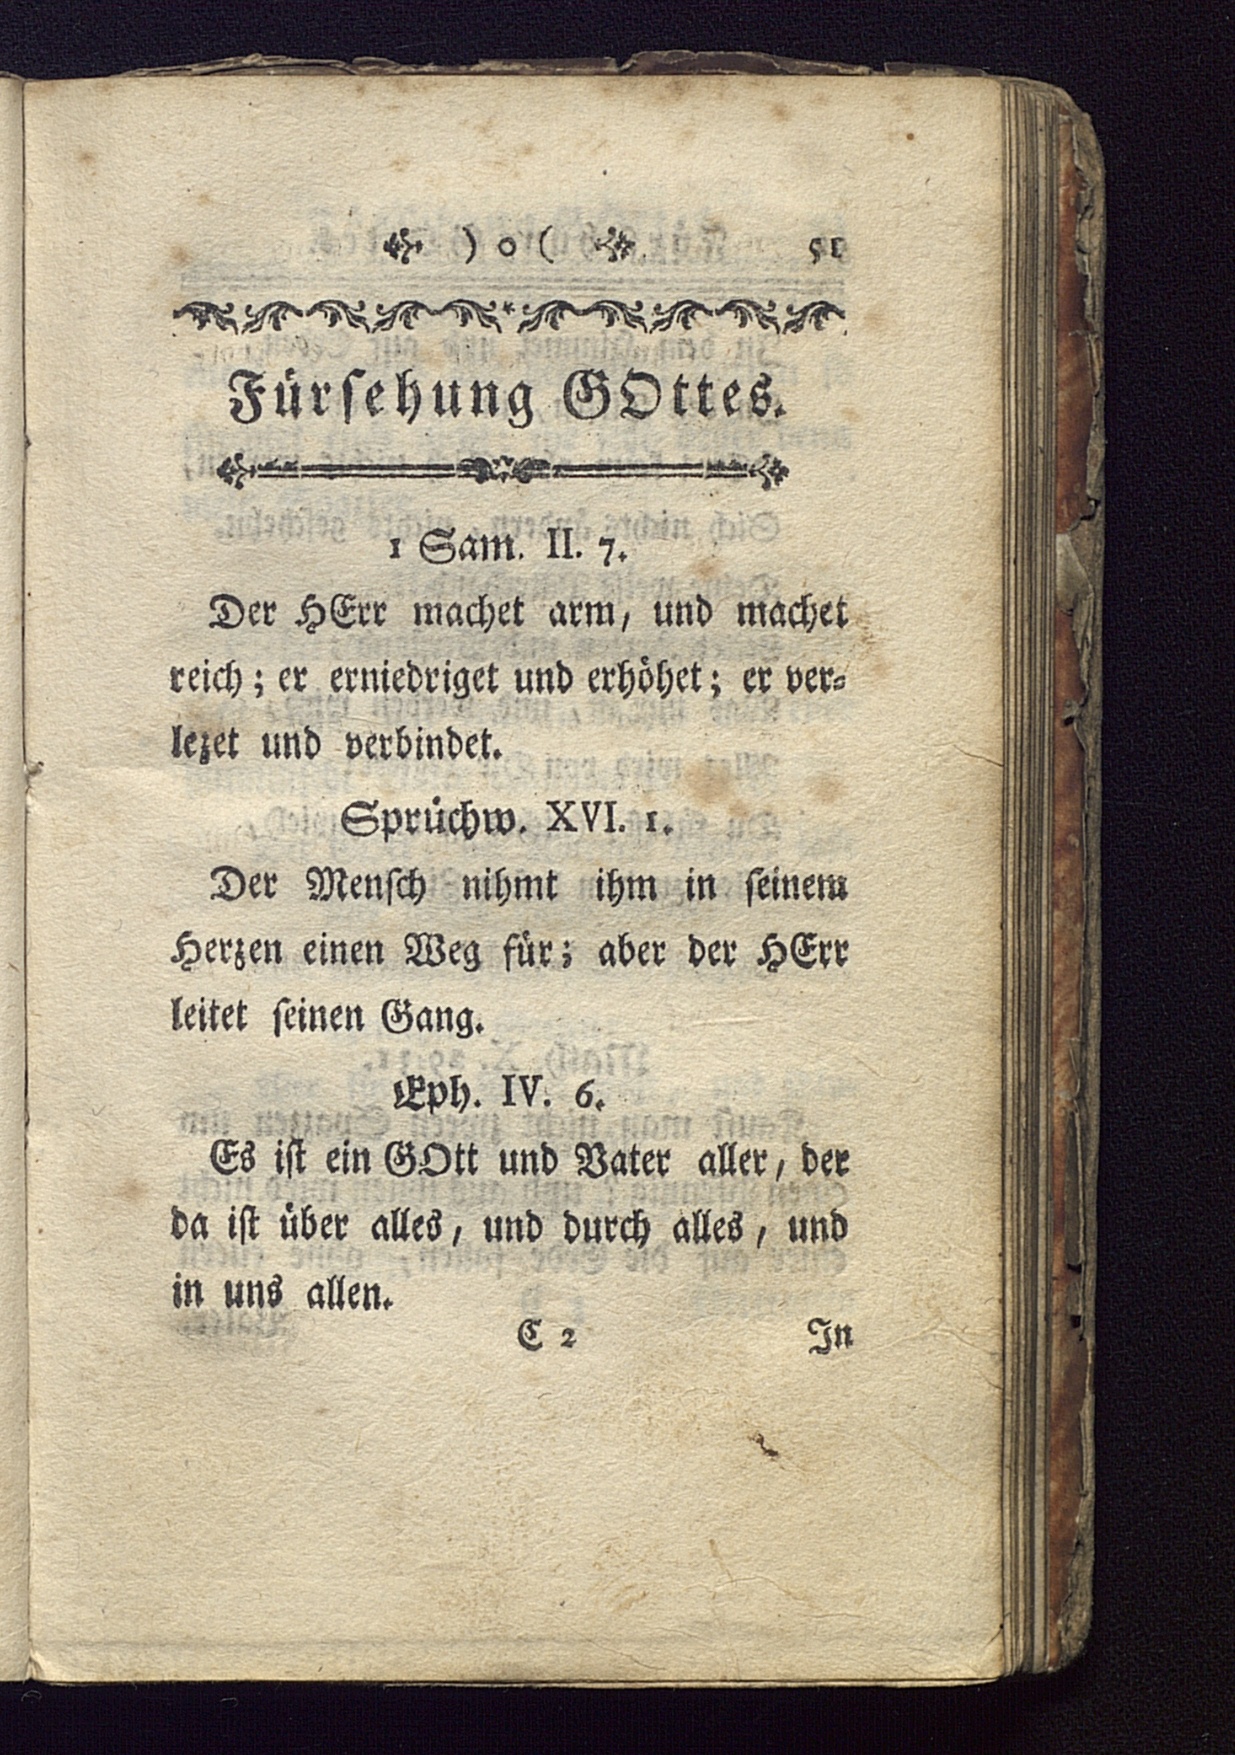 ) o ( 51
Fürsehung GOttes.
1 Sam. II. 7.
Der HErr machet arm, und machet
reich; er erniedriget und erhöhet; er ver-
lezet und verbindet.
Sprüchw. XVI. 1.
Der Mensch nihmt ihm in seinem
Herzen einen Weg für; aber der HErr
leitet seinen Gang.
Eph. IV. 6.
Es ist ein GOtt und Vater aller, der
da ist über alles, und durch alles, und
in uns allen.
C 2 In